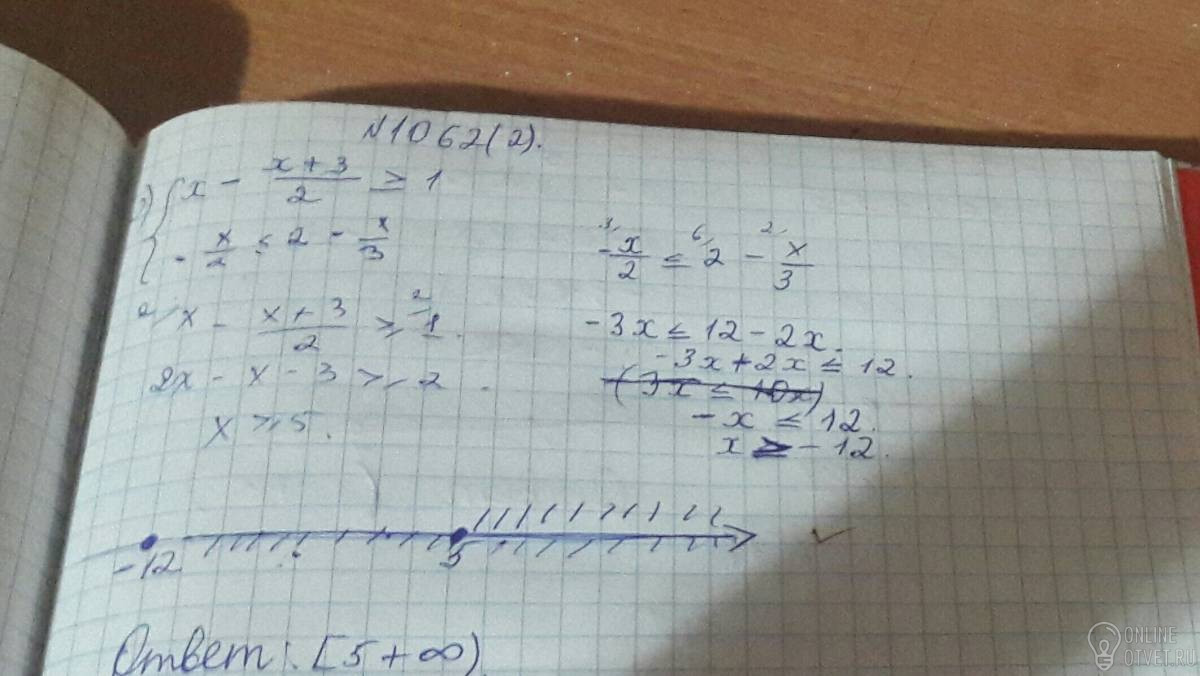 №1062(2).
2) { x - (x+3)/2 ≥ 1
{ - x/2 ≤ 2 - x/3
2/ x - (x+3)/2 ≥ 2/ 1.
2x - x - 3 ≥ 2.
x ≥ 5.
3/ -x/2 ≤ 6/ 2 - 2/ x/3
-3x ≤ 12 - 2x.
-3x + 2x ≤ 12.
(3x ≤ 10x)
-x ≤ 12.
x ≥ -12.
-12 5
Ответ: [5 +∞)
ONLINE
OTVET.RU